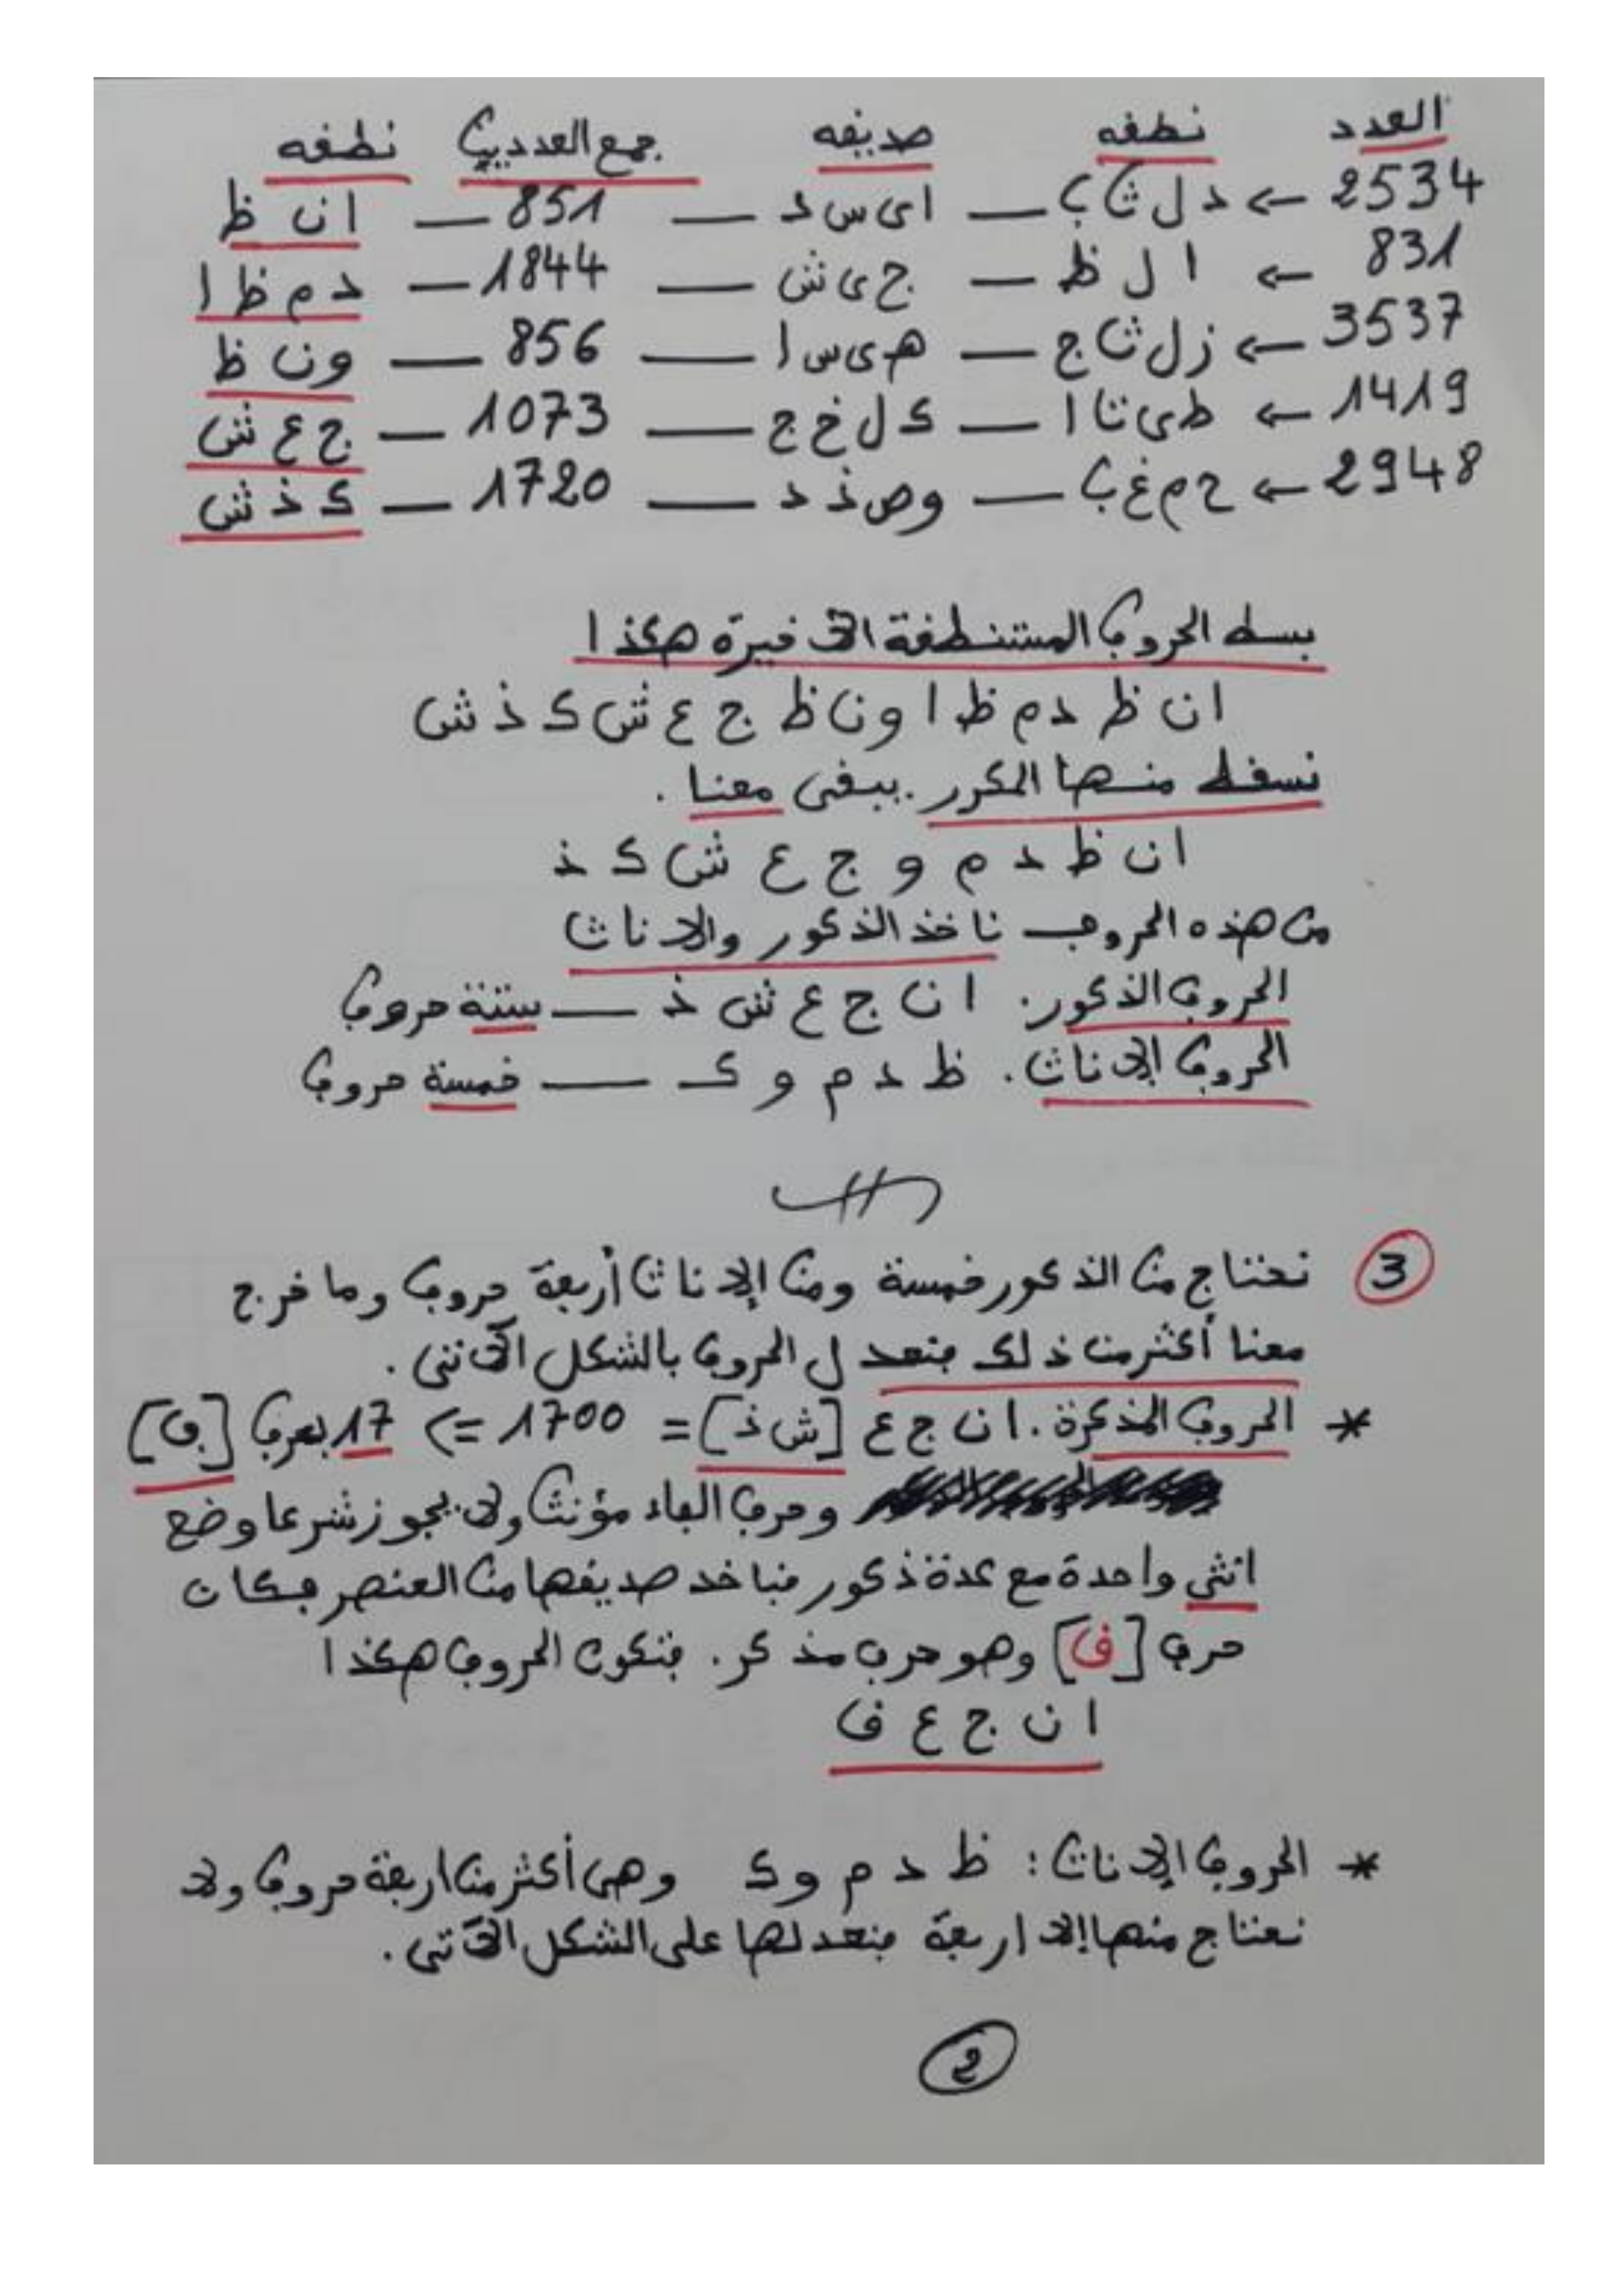 العدد نطقه صديقه جمع العددين نطقه
2534 ← د ل ث ب — ا ى س د — 851 — ا ن ظ
831 ← ا ل ظ — ج ى ش — 1844 — د م ظ ا
3537 ← ز ل ث ج — ه ى س ا — 856 — و ن ظ
1419 ← ط ى ت ا — ك ل خ ج — 1073 — ج ع ش
2948 ← ح م غ ب — و ص ذ د — 1720 — ك ذ ش
بسط الحروف المستنطقة الأخيرة هكذا
ا ن ظ د م ظ ا و ن ظ ج ع ش ك ذ ش
نسقط منها المكرر. يبقى معنا.
ا ن ظ د م و ج ع ش ك ذ
من هذه الحروف ناخذ الذكور والاناث
الحروف الذكور. ا ن ج ع ش ذ — ستة حروف
الحروف الإناث. ظ د م و ك — خمسة حروف
③ نحتاج من الذكور خمسة ومن الإناث أربعة حروف وما خرج
معنا أكثر من ذلك فنعدل الحروف بالشكل الآتي.
* الحروف المذكرة. ا ن ج ع [ش ذ] = 1700 => 17 بحرف [ف]
وحرف الفاء مؤنث ولا يجوز شرعا وضع
انثى واحدة مع عدة ذكور فناخد صديقها من العنصر فكان
حرف [ق] وهو حرف مذكر. فتكون الحروف هكذا
ا ن ج ع ق
* الحروف الإناث: ظ د م و ك وهي أكثر من اربعة حروف ولا
نحتاج منها إلا اربعة فنعدلها على الشكل الآتي.
2